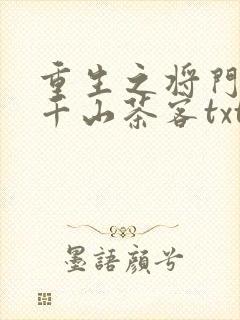 重生之将门
千山茶客txt
墨語顔兮